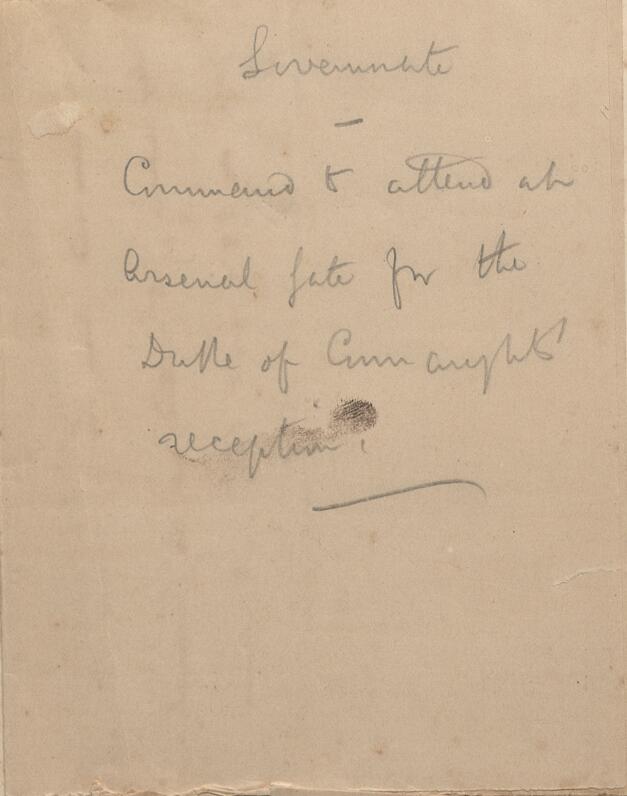 Command to attend at
Arsenal Gate for the
Duke of Connaught's
reception.